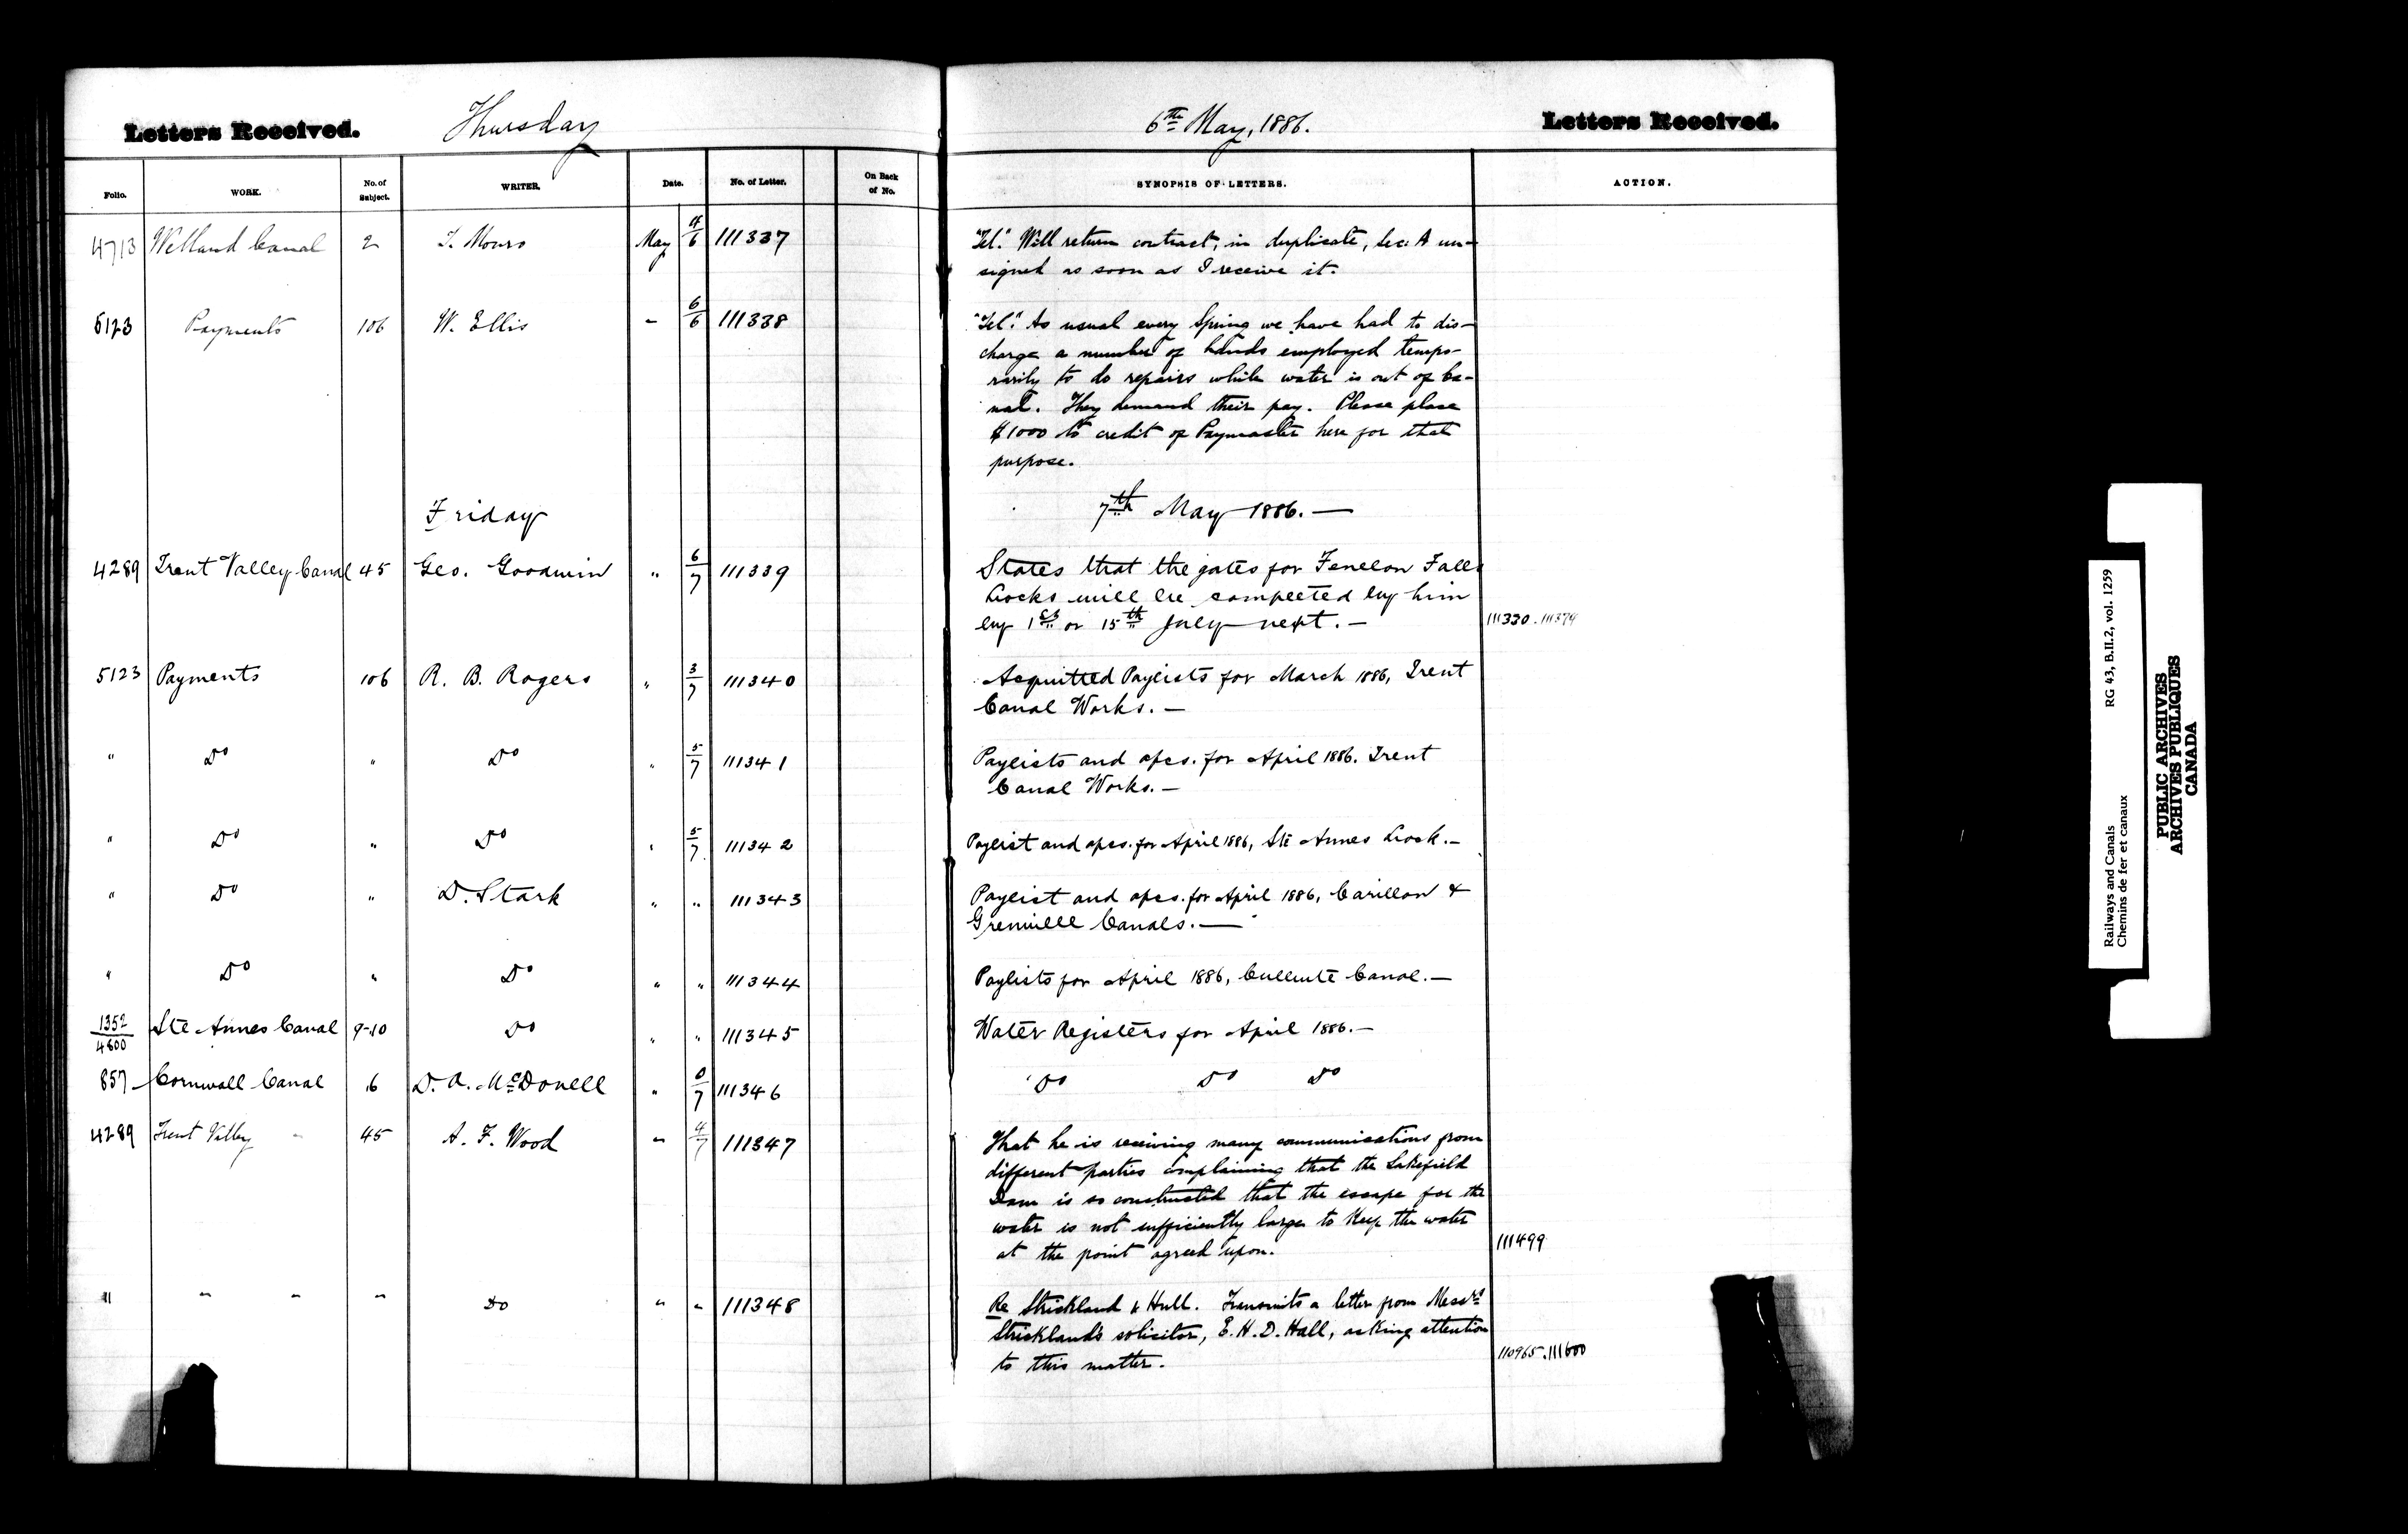 Letters Received. Thursday 6th May, 1886. Letters Received.
Folio. WORK. No. of Subject. WRITER. Date. No. of Letter. On Back of No. SYNOPSIS OF LETTERS. ACTION.
4713 Welland Canal 2 T. Monro May 4/6 111337 "Tel." Will return contract, in duplicate, Sec. A un-
signed as soon as I receive it.
5123 Payments 106 W. Ellis " 6/6 111338 "Tel." As usual every Spring we have had to dis-
charge a number of hands employed tempo-
rarily to do repairs while water is out of Ca-
nal. They demand their pay. Please place
$1000 to credit of Paymaster here for that
purpose.
Friday 7th May 1886.—
4289 Trent Valley Canal 45 Geo. Goodwin " 6/7 111339 States that the gates for Fenelon Falls
Locks will be completed by him
by 1st or 15th July next.— 111330. 111374
5123 Payments 106 R. B. Rogers " 3/7 111340 Acquitted Paylists for March 1886, Trent
Canal Works.—
" Do " Do " 5/7 111341 Paylists and apcs. for April 1886. Trent
Canal Works.—
" Do " Do " 5/7 111342 Paylist and apcs. for April 1886, Ste Annes Lock.—
" Do " D. Stark " " 111343 Paylist and apcs. for April 1886, Carillon &
Grenville Canals.—
" Do " Do " " 111344 Paylists for April 1886, Culbute Canal.—
1352/4600 Ste Annes Canal 9-10 Do " " 111345 Water Registers for April 1886.—
857 Cornwall Canal 16 D. A. McDonell " 6/7 111346 Do Do Do
4289 Trent Valley " 45 A. F. Wood " 4/7 111347 That he is receiving many communications from
different parties complaining that the Lakefield
Dam is so constructed that the escape for the
water is not sufficiently large to Keep the water
at the point agreed upon. 111499
" " " " Do " " 111348 Re Strickland & Hull. Transmits a letter from Messrs
Strickland's solicitor, E. H. D. Hall, asking attention
to this matter. 110965. 111600
Railways and Canals RG 43, B.II.2, vol. 1259
Chemins de fer et canaux
PUBLIC ARCHIVES
ARCHIVES PUBLIQUES
CANADA